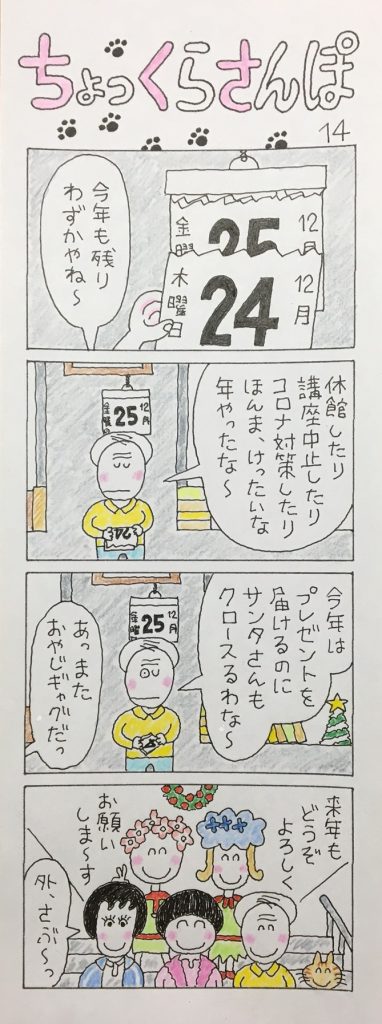 ちょっくらさんぽ
14
今年も残り
わずかやね〜
金曜日
25
12月
木曜日
24
12月
休館したり
講座中止したり
コロナ対策したり
ほんま、けったいな
年やったな〜
金曜日
25
12月
24
今年は
プレゼントを
届けるのに
サンタさんも
クロースるわな〜
金曜日
25
12月
あっまた
おやじギャグだっ
来年も
どうぞ
よろしく
お願い
しま〜す
外、さぶ〜っ